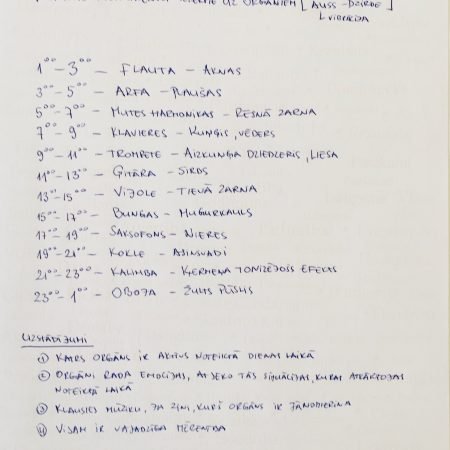 IETEKME UZ ORGĀNIEM [ AUSS - DZIRDE ]
VIBRĀCIJA
1⁰⁰ – 3⁰⁰ – FLAUTA – AKNAS
3⁰⁰ – 5⁰⁰ – ARFA – PLAUŠAS
5⁰⁰ – 7⁰⁰ – MUTES HARMONIKAS – RESNĀ ZARNA
7⁰⁰ – 9⁰⁰ – KLAVIERES – KUŅĢIS, VĒDERS
9⁰⁰ – 11⁰⁰ – TROMPETE – AIZKUŅĢA DZIEDZERIS, LIESA
11⁰⁰ – 13⁰⁰ – ĢITĀRA – SIRDS
13⁰⁰ – 15⁰⁰ – VIJOLE – TIEVĀ ZARNA
15⁰⁰ – 17⁰⁰ – BUNGAS – MUGURKAULS
17⁰⁰ – 19⁰⁰ – SAKSOFONS – NIERES
19⁰⁰ – 21⁰⁰ – KOKLE – ASINSVADI
21⁰⁰ – 23⁰⁰ – KALIMBA – ĶERMEŅA TONIZĒJOŠS EFEKTS
23⁰⁰ – 1⁰⁰ – OBOJA – ŽULTS PŪSLIS
UZSTĀDĪJUMI
① KATRS ORGĀNS IR AKTĪVS NOTEIKTĀ DIENAS LAIKĀ
② ORGĀNI RADA EMOCIJAS, ATSEKO TĀS SITUĀCIJAS, KURAS ATKĀRTOJAS
NOTEIKTĀ LAIKĀ
③ KLAUSIES MŪZIKU, JA ZINI, KURŠ ORGĀNS IR JĀNOMIERINA
④ VISAM IR VAJADZĪGA MĒRENĪBA